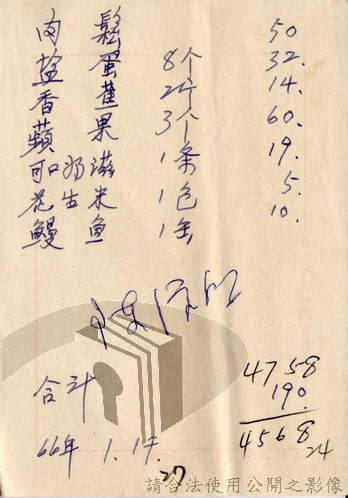 肉鬆 50
塩蛋 8个 32.
香蕉 2斤 14.
蘋果 3个 60.
可口奶滋 1条 19.
花生米 1包 5.
鰻魚 1缶 10.
合計
4758
190.
4568
24
66年 1. 17.
27
請合法使用公開之影像